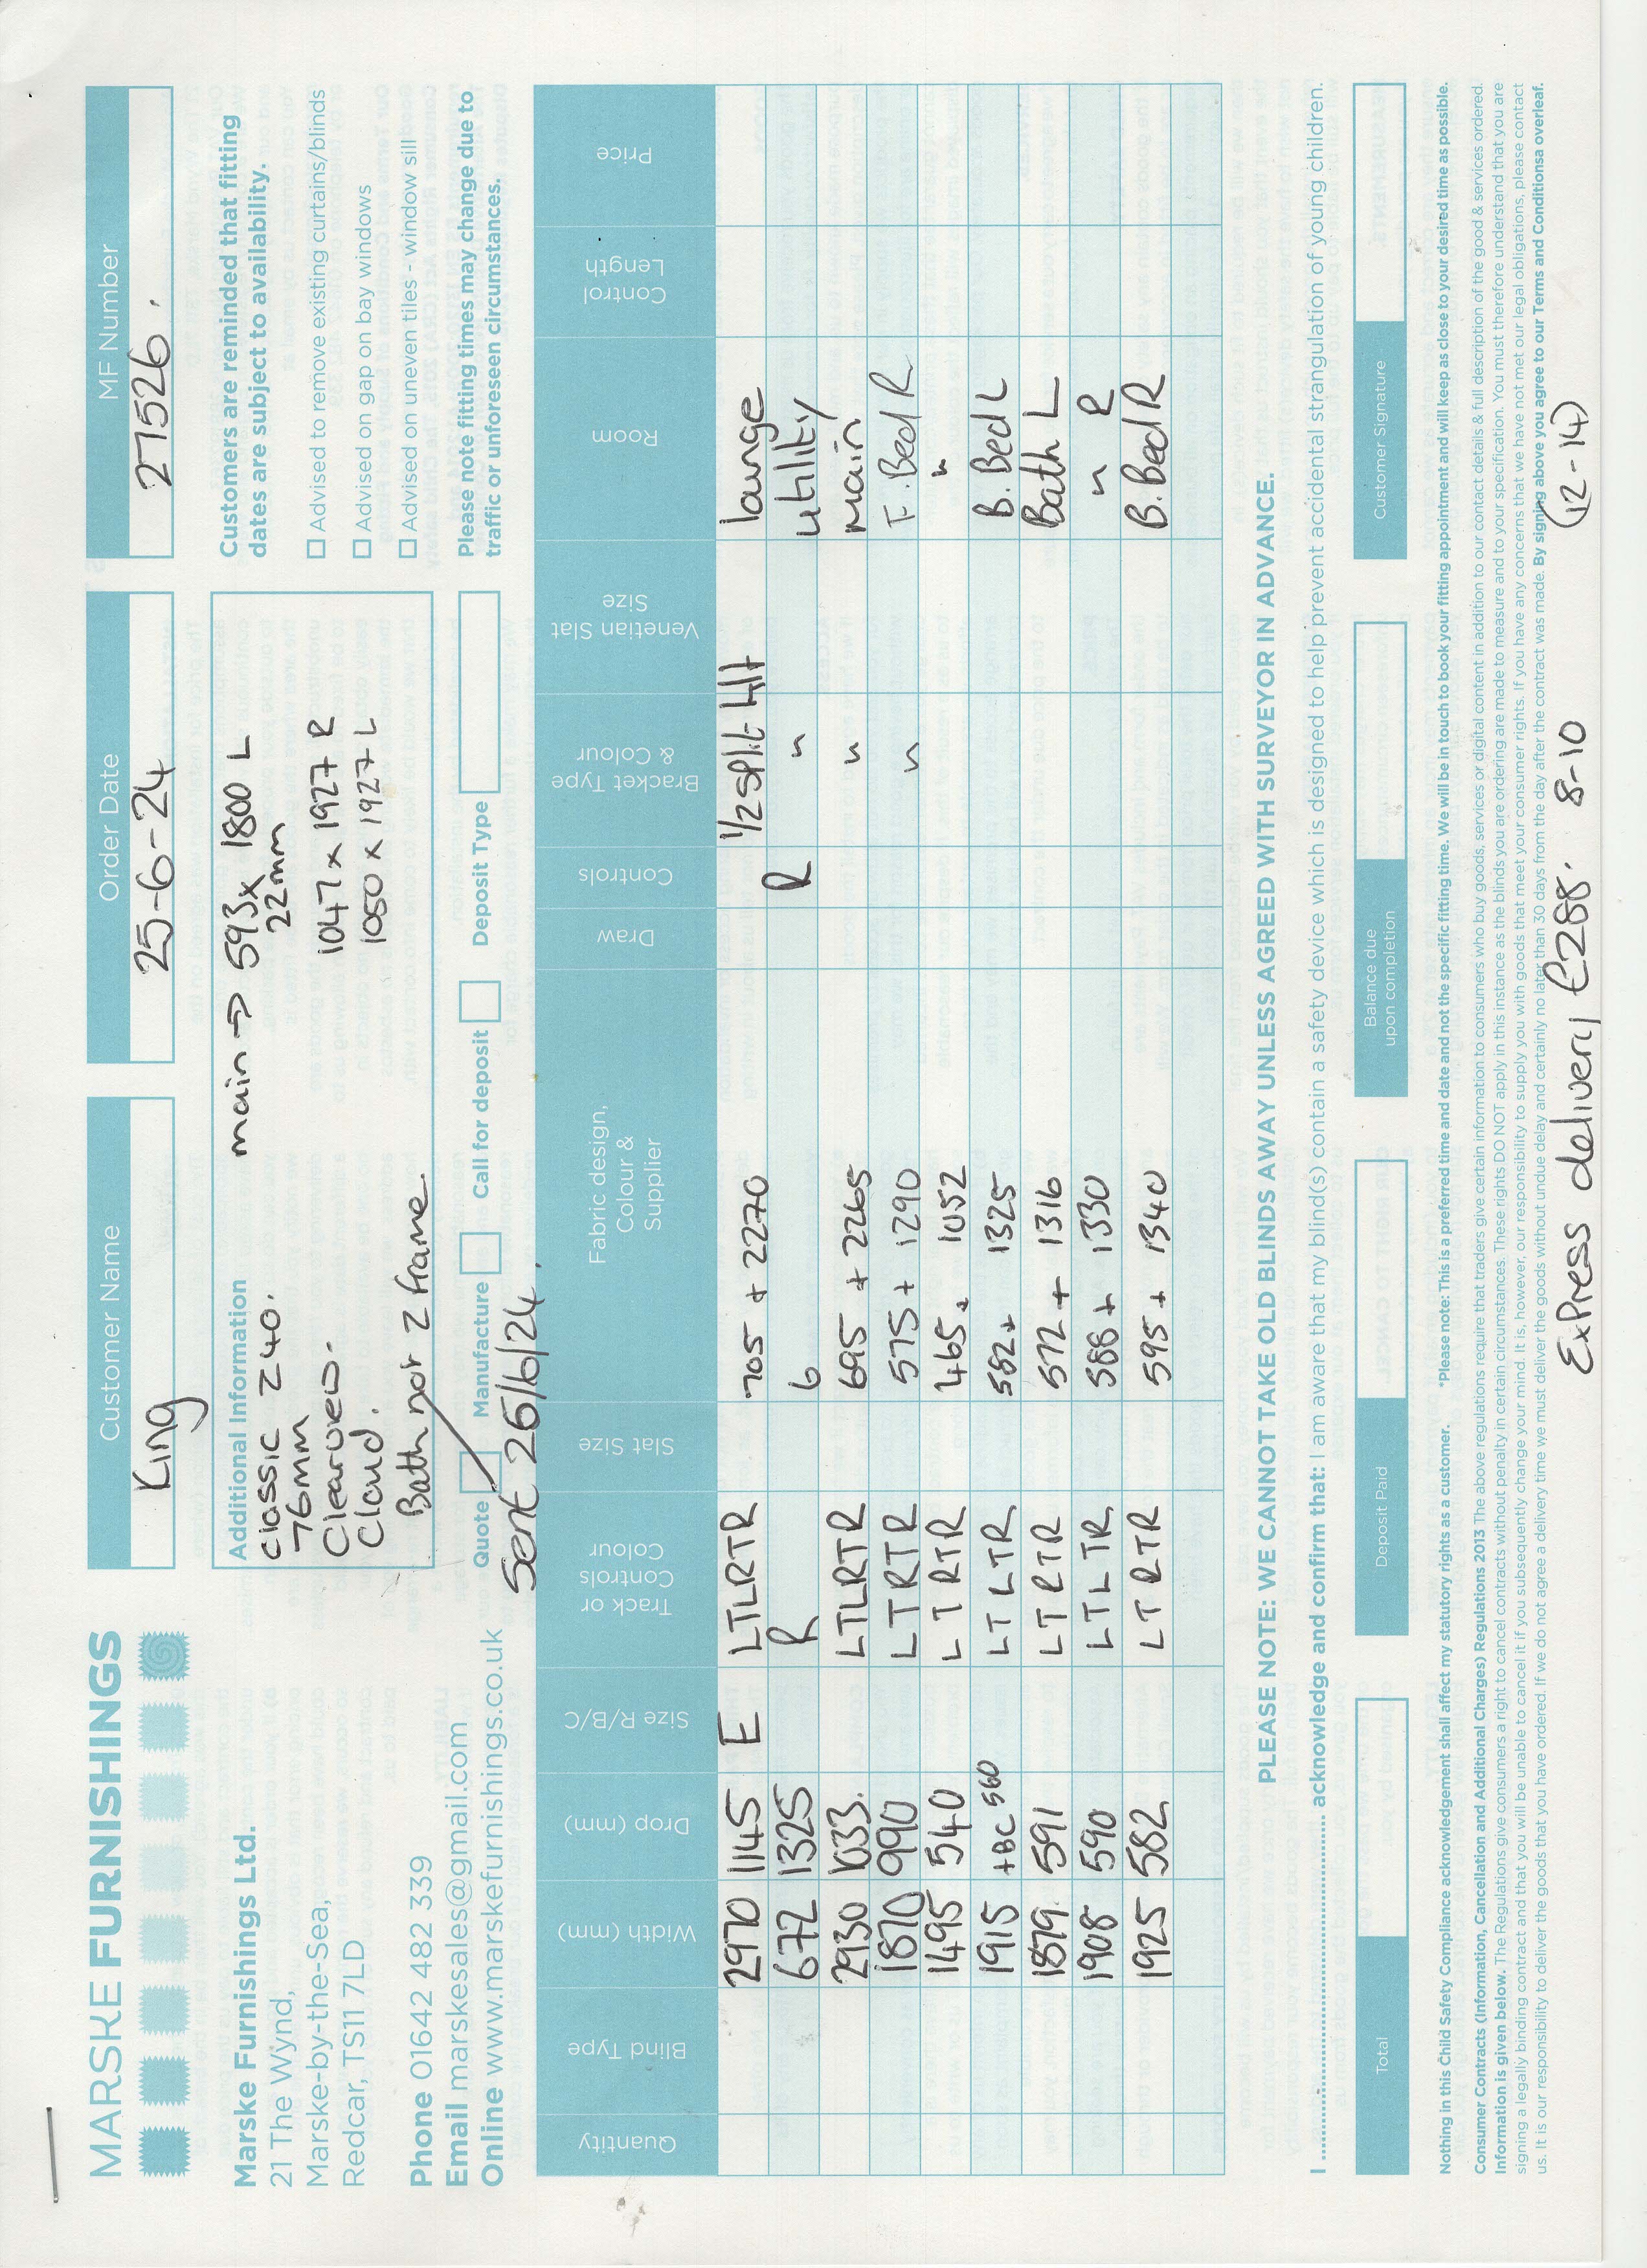 MARSKE FURNISHINGS
Marske Furnishings Ltd.
21 The Wynd,
Marske-by-the-Sea,
Redcar, TS11 7LD
Phone 01642 482 339
Email marskesales@gmail.com
Online www.marskefurnishings.co.uk
Customer Name
King
Order Date
25-6-24
MF Number
27526.
Additional Information
Classic Z40.
76mm
Clearview.
Cloud.
Bath not Z frame
main → 593 x 1800 L
22mm
1047 x 1927 R
1050 x 1927 L
Customers are reminded that fitting
dates are subject to availability.
Advised to remove existing curtains/blinds
Advised on gap on bay windows
Advised on uneven tiles - window sill
Please note fitting times may change due to
traffic or unforeseen circumstances.
Quote Manufacture Call for deposit Deposit Type
Sent 26/6/24.
Quantity Blind Type Width (mm) Drop (mm) Size R/B/C Track or Controls Colour Slat Size Fabric design, Colour & Supplier Draw Controls Bracket Type & Colour Venetian Slat Size Room Control Length Price
2970 1145 E LTLRTR 705 + 2270 1/2 split tilt lounge
672 1325 R 6 R " utility
2930 1033. LTLRTR 695 + 2265 " main
1870 990 LTRTR 575 + 1290 " F. Bed R
1495 540 LTRTR 465 + 1052 "
1915 +BC 560 LTLTR 582 + 1325 B. Bed L
1879 591 LTRTR 572 + 1316 Bath L
1908 590 LTLTR 588 + 1330 " R
1925 582 LTRTR 595 + 1340 B. Bed R
PLEASE NOTE: WE CANNOT TAKE OLD BLINDS AWAY UNLESS AGREED WITH SURVEYOR IN ADVANCE.
I .................................................. acknowledge and confirm that: I am aware that my blind(s) contain a safety device which is designed to help prevent accidental strangulation of young children.
Total
Deposit Paid
Balance due upon completion
Customer Signature
Nothing in this Child Safety Compliance acknowledgement shall affect my statutory rights as a customer. *Please note: This is a preferred time and date and not the specific fitting time. We will be in touch to book your fitting appointment and will keep as close to your desired time as possible.
Consumer Contracts (Information, Cancellation and Additional Charges) Regulations 2013 The above regulations require that traders give certain information to consumers who buy goods, services or digital content in addition to our contact details & full description of the good & services ordered.
Information is given below. The Regulations give consumers a right to cancel contracts without penalty in certain circumstances. These rights DO NOT apply in this instance as the blinds you are ordering are made to measure and to your specification. You must therefore understand that you are
signing a legally binding contract and that you will be unable to cancel it if you subsequently change your mind. It is, however, our responsibility to supply you with goods that meet your consumer rights. If you have any concerns that we have not met our legal obligations, please contact
us. It is our responsibility to deliver the goods without undue delay and certainly no later than 30 days from the day after the contract was made. By signing above you agree to our Terms and Conditionsa overleaf.
Express delivery £288. 8-10 (12-14)